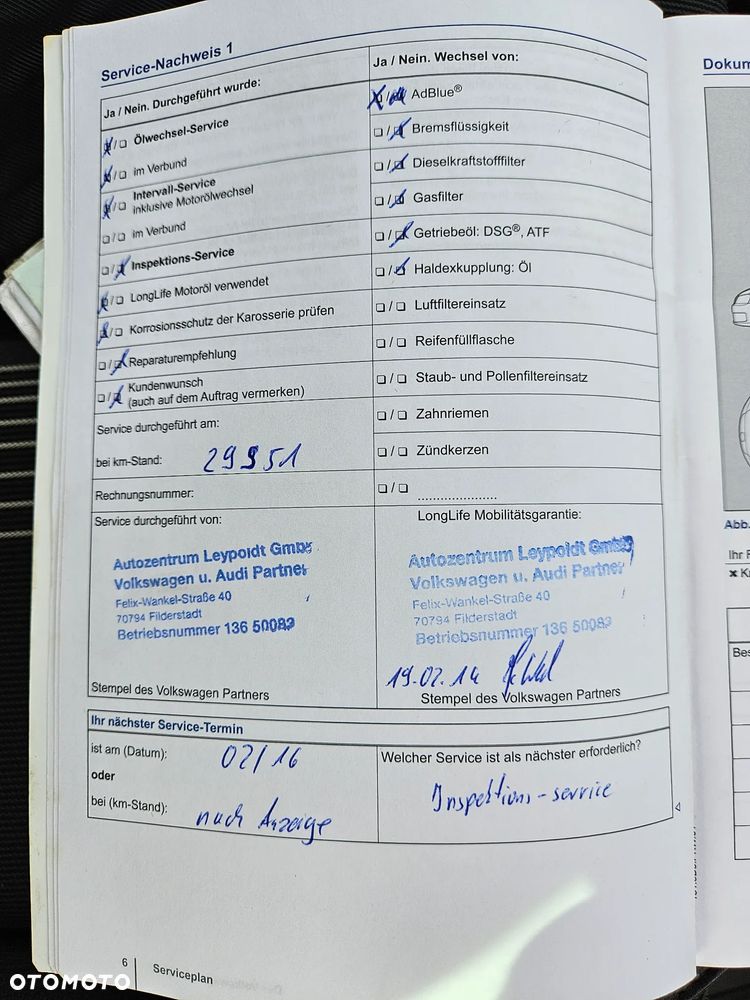 Service-Nachweis 1
Ja / Nein. Durchgeführt wurde:
Ölwechsel-Service
im Verbund
Intervall-Service
inklusive Motorölwechsel
im Verbund
Inspektions-Service
LongLife Motoröl verwendet
Korrosionsschutz der Karosserie prüfen
Reparaturempfehlung
Kundenwunsch
(auch auf dem Auftrag vermerken)
Service durchgeführt am:
bei km-Stand: 29951
Rechnungsnummer:
Service durchgeführt von:
Autozentrum Leypoldt GmbH
Volkswagen u. Audi Partner
Felix-Wankel-Straße 40
70794 Filderstadt
Betriebsnummer 136 50082
Stempel des Volkswagen Partners
Ja / Nein. Wechsel von:
AdBlue®
Bremsflüssigkeit
Dieselkraftstofffilter
Gasfilter
Getriebeöl: DSG®, ATF
Haldexkupplung: Öl
Luftfiltereinsatz
Reifenfüllflasche
Staub- und Pollenfiltereinsatz
Zahnriemen
Zündkerzen
.....................
LongLife Mobilitätsgarantie:
Autozentrum Leypoldt GmbH
Volkswagen u. Audi Partner
Felix-Wankel-Straße 40
70794 Filderstadt
Betriebsnummer 136 50082
19.02.14
Stempel des Volkswagen Partners
Ihr nächster Service-Termin
ist am (Datum): 02/16
oder
bei (km-Stand): nach Anzeige
Welcher Service ist als nächster erforderlich?
Inspektions-service
6
Serviceplan
Dokum
Abb.
Ihr F
Bes
OTOMOTO